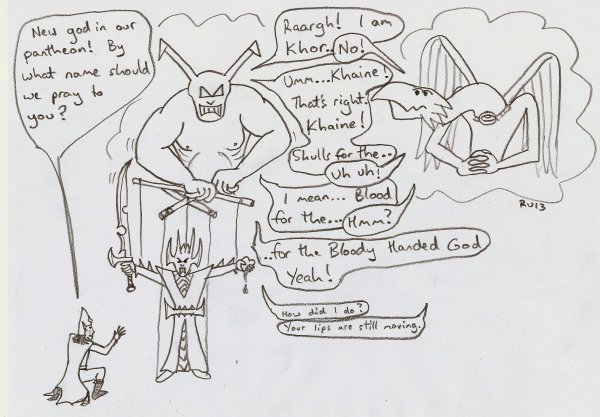 New god in our
pantheon! By
what name should
we pray to
you?
Raargh! I am
Khor..
No!
Umm...Khaine!
That's right.
Khaine!
Skulls for the..
Uh uh!
I mean... Blood
for the...
Hmm?
..for the Bloody Handed God
Yeah!
How did I do?
Your lips are still moving.
RU13